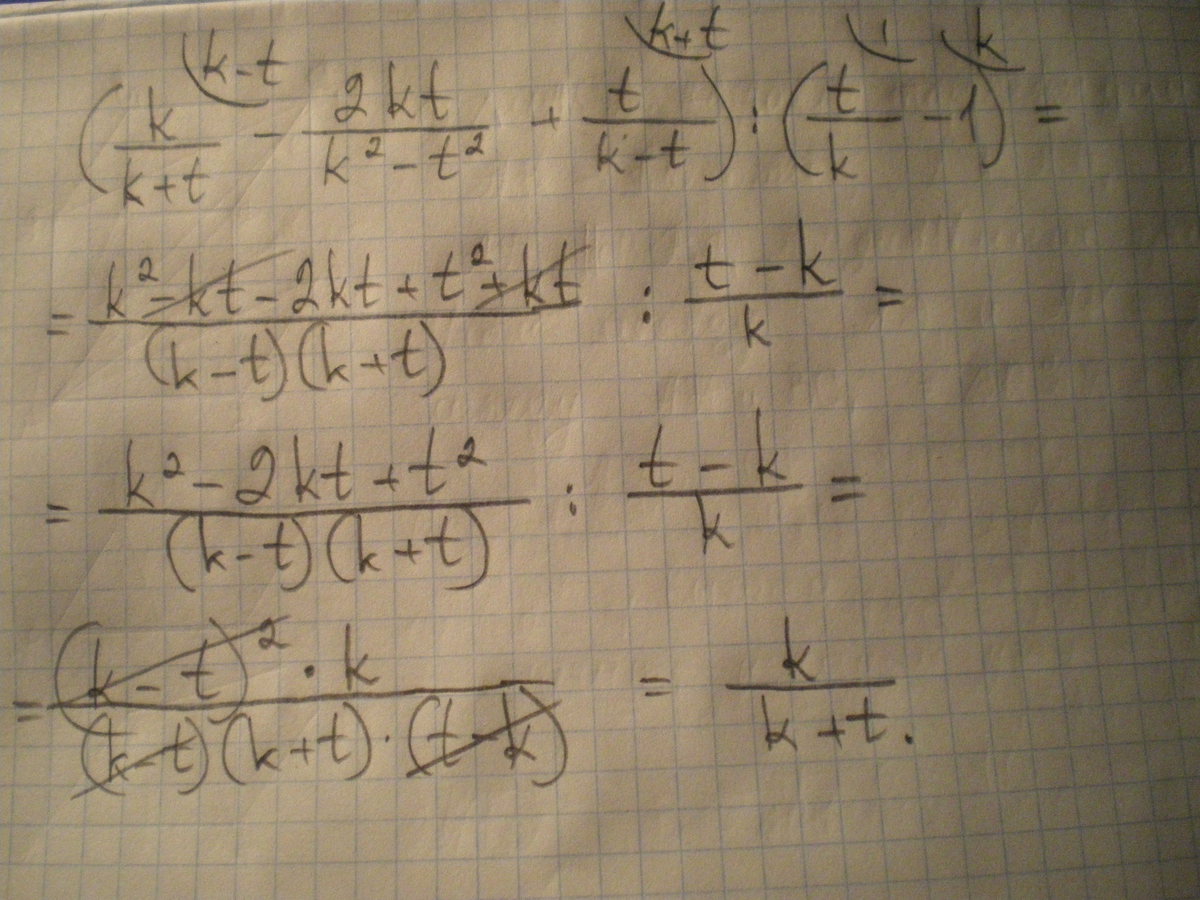 (k/(k+t) ⁽ᵏ⁻ᵗ − 2kt/(k²−t²) + t/(k−t) ⁽ᵏ⁺ᵗ) : (t/k ⁽¹ − 1 ⁽ᵏ) =
= (k² − kt − 2kt + t² + kt)/((k−t)(k+t)) : (t−k)/k =
= (k² − 2kt + t²)/((k−t)(k+t)) : (t−k)/k =
= ((k−t)² · k)/((k−t)(k+t) · (t−k)) = k/(k+t).